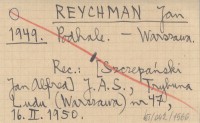 REYCHMAN Jan
1949. Podhale. — Warszawa.
Rec.: [Szczepański
Jan Alfred] J.A.S., Trybuna
Ludu (Warszawa) nr 47,
16. II. 1950.